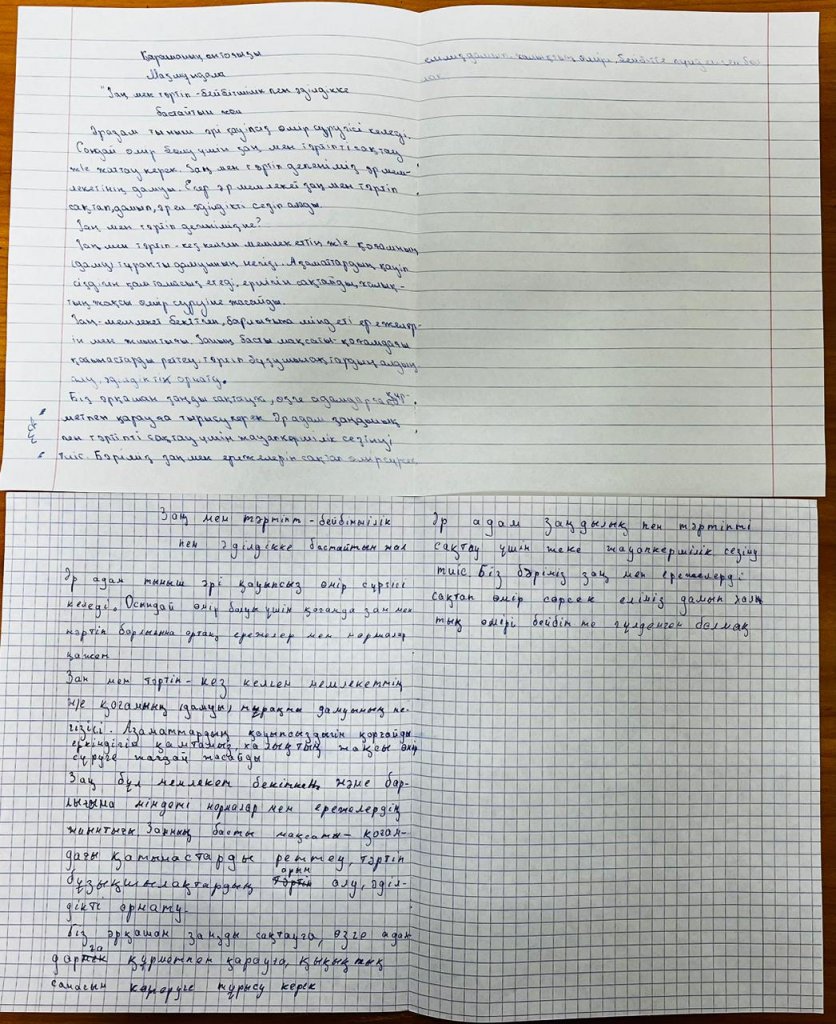 Қарашаның онтоғызы
Мазмұндама
"Заң мен тәртіп - бейбітшілік пен әділдікке
бастайтын жол
Әр адам тыныш әрі қауіпсіз өмір сүргісі келеді.
Сондай өмір болу үшін заң мен тәртіпті сақтау
ж/е жаттау керек. Заң мен тәртіп дегеніміз әр мем-
лекетінің дамуы. Егер әр мемлекет заң мен тәртіп
сақтап, дамып, әрең әділдікті сезіп алды.
Заң мен тәртіп дегініміз не?
Заң мен тәртіп - кез келген мемлекеттің ж/е қоғамның
(даму) тұрақты дамуының негізі. Азаматтардың қауіп
сіздігін қамтамасыз етеді, еркіндігін сақтайды, халық-
тың жақсы өмір сүруіне жасайды.
Заң - мемлекет бекіткен, барлығына міндетті ережелер-
ін мен жиынтығы. Заның басты мақсаты - қоғамдағы
қатынастарды реттеу, тәртіп бұзушылақтардың алдын
алу, әділдіктік орнату.
Біз әрқашан заңды сақтауға, өзге адамдарға құр-
метпен қарауға тырысу керек. Әр адам заңдылық
пен тәртіпті сақтау үшін жауапкермілік сезінуі
тиіс. Бәріміз заң мен ережелерін сақтап өмір сүрсек
еліміз дамып, халықтың өмірі, бейбіт гүлденген бо
лмақ
Заң мен тәртіпт - бейбіншілік
пен әділдікке бастайтын жол
Әр адам тыныш әрі қауыпсыз өмір сүргісі
келеді. Осындай өмір болуы үшін қоғамда заң мен
тәртіп барлығына ортақ ережелер мен нормалар
қажет
Зан мен тәртіп - кез келген мемлекеттің
ж/е қоғамының (дамуы) тұрақты дамуының не-
гізісі. Азаматтардың қауыпсыздығін қорғайды
еркіндігін қамтамыз, халықтың жақсы өмір
сүруге жағдай жасайды
Заң бұл мемлекет бекіткен және бар-
лығына міндеті нормалар мен ережелердің
жиынтығы Заңның басты мақсаты - қоғам-
дағы қатынастарды реттеу, тәртіп
бұзықшылақтардың алу, әділ-
дікті орнату.
Біз әрқашан заңды сақтауға, өзге адам
дарға құрметпен қарауға, құқықтық
санасын көтеруге тұрысу керек
Әр адам заңдылық пен тәртіпті
сақтау үшін жеке жауапкермілік сезіну
тиіс. Біз бәріміз заң мен ережелерді
сақтап өмір сәрсек еліміз дамып халы
тық өмері бейбіт те гүлденген болмақ